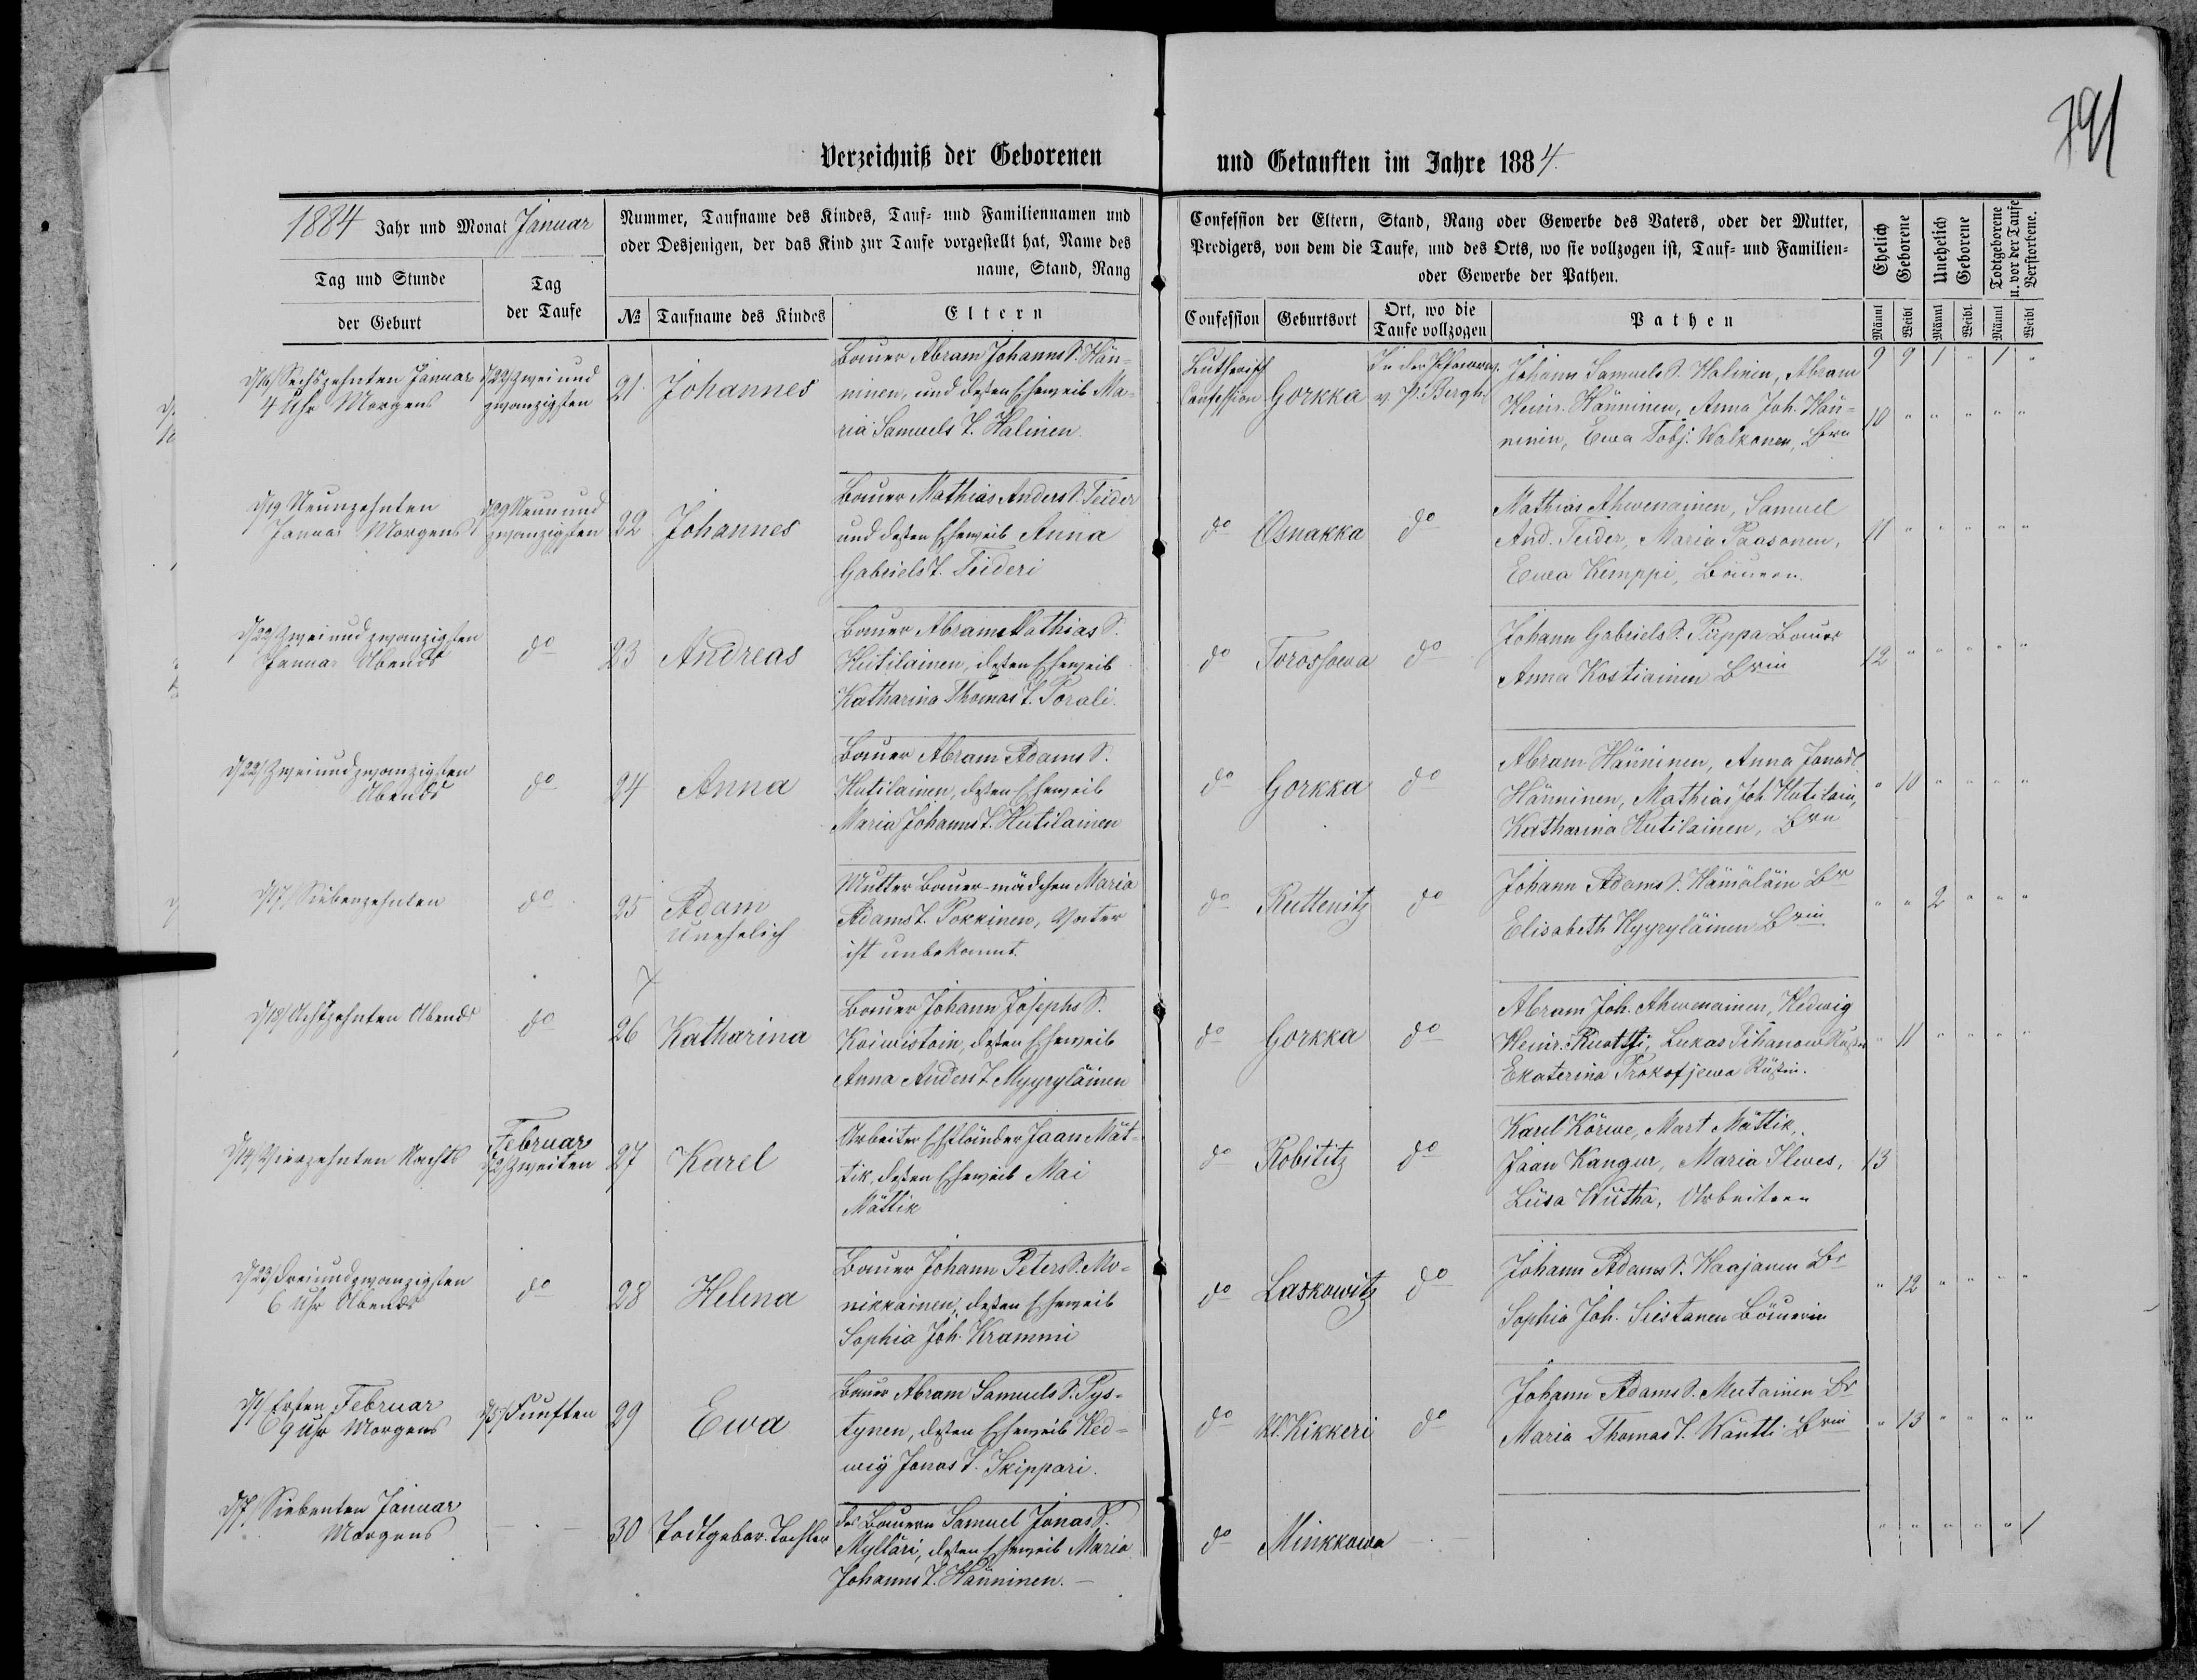 791
Verzeichniß der Geborenen und Getauften im Jahre 1884.
1884 Jahr und Monat Januar
Nummer, Taufname des Kindes, Tauf- und Familiennamen und
oder Desjenigen, der das Kind zur Taufe vorgestellt hat, Name des
name, Stand, Rang
Confession der Eltern, Stand, Rang oder Gewerbe des Vaters, oder der Mutter,
Predigers, von dem die Taufe, und des Orts, wo sie vollzogen ist, Tauf- und Familien-
oder Gewerbe der Pathen.
Ehelich Geborene
Unehelich Geborene
Todtgeborene u. vor der Taufe Verstorbene.
Tag und Stunde der Geburt
Tag der Taufe
№ Taufname des Kindes Eltern
Confession Geburtsort Ort, wo die Taufe vollzogen Pathen
Männl Weibl Männl Weibl. Männl Weibl
9 9 1 " 1 "
d/16/ Sechszehnten Januar
4 Uhr Morgens
d/22/ zwei und
zwanzigsten
21. Johannes
Bauer Abram Johanns S. Hän-
ninen, und dessen Eheweib Ma-
ria Samuels T. Halinen.
Lutherisch
Confession
Gorkka
v. P. Bergh.
Johann Samuels S. Halinen, Abram
Heinr. Hänninen, Anna Joh. Hän-
ninen, Ewa Tobj. Walkonen, Brn
10 " " " " "
d/19 Neunzehnten
Januar Morgens
d/29 Neun und
zwanzigsten
22 Johannes
Bauer Mathias Anders S. Teider
und dessen Eheweib Anna
Gabriels T. Teideri
do Osnakka do
Mathias Ahwenainen, Samuel
And. Teider, Maria Paasonen,
Ewa Kemppi, Bauern.
11 " " " " "
d/22/ Zwei und zwanzigsten
Januar Abends
do
23 Andreas
Bauer Abram Mathias S.
Hutilainen, dessen Eheweib
Katharina Thomas T. Porali.
do Torossowa do
Johann Gabriels S. Puppa Bauer
Anna Kostiainen Brin
12 " " " " "
d/22/ Zwei und zwanzigsten
Abends
do
24 Anna
Bauer Abram Adams S.
Hutilainen, dessen Eheweib
Maria Johanns T. Hutilainen
do Gorkka do
Abram Hänninen, Anna Jonas T.
Hänninen, Mathias Joh. Hutilain,
Katharina Hutilainen, Brn
" 10 " " " "
d/17/ Siebenzehnten
do
25 Adam
Unehelich
Mutter Bauer-mädchen Maria
Adams T. Pokkinen, Vater
ist unbekannt.
do Ruttenitz do
Johann Adams S. Hämäläin Br
Elisabeth Hyyryläinen Brin
" " 2 " " "
d/18/ Achtzehnten Abends
do
26 Katharina
Bauer Johann Josephs S.
Koiwistoin, dessen Eheweib
Anna Anders T. Myyryläinen
do Gorkka do
Abram Joh. Ahwenainen, Hedwig
Heinr. Ruotsi, Lukas Tihanow Russe
Ekaterina Prokofjewa Russin.
" 11 " " " "
d/14/ Vierzehnten Nachts
Februar
d/2/ Zweiten
27 Karel
Arbeiter Estländer Jaan Mät-
tik, dessen Eheweib Mai
Mättik
do Robititz do
Karel Körwe, Mart Mättik,
Jaan Kangur, Maria Ilwes,
Liisa Kütha, Arbeitern
13
d/23/ Dreiundzwanzigsten
6 Uhr Abends
do
28 Helena
Bauer Johann Peters S. Mo-
nikkainen, dessen Eheweib
Sophia Joh. Krammi
do Laskowitz do
Johann Adams S. Haajanen Br
Sophia Joh. Siistanen Bäuerin
" 12 " " " "
d/1/ Ersten Februar
9 Uhr Morgens
d/5/ Fünften
29 Ewa
Bauer Abram Samuels S. Pys-
tynen, dessen Eheweib Hed-
wig Jonas T. Skippari.
do Kl. Kikkeri do
Johann Adams S. Mutainen Br
Maria Thomas T. Käntti Brin
" 13 " " " "
d/7/ Siebenten Januar
Morgens
30 Todtgebor. Tochter
des Bauern Samuel Jonas S.
Mylläri, dessen Eheweib Maria
Johanns T. Hänninen. –
do Minkkowa
" " " " " 1